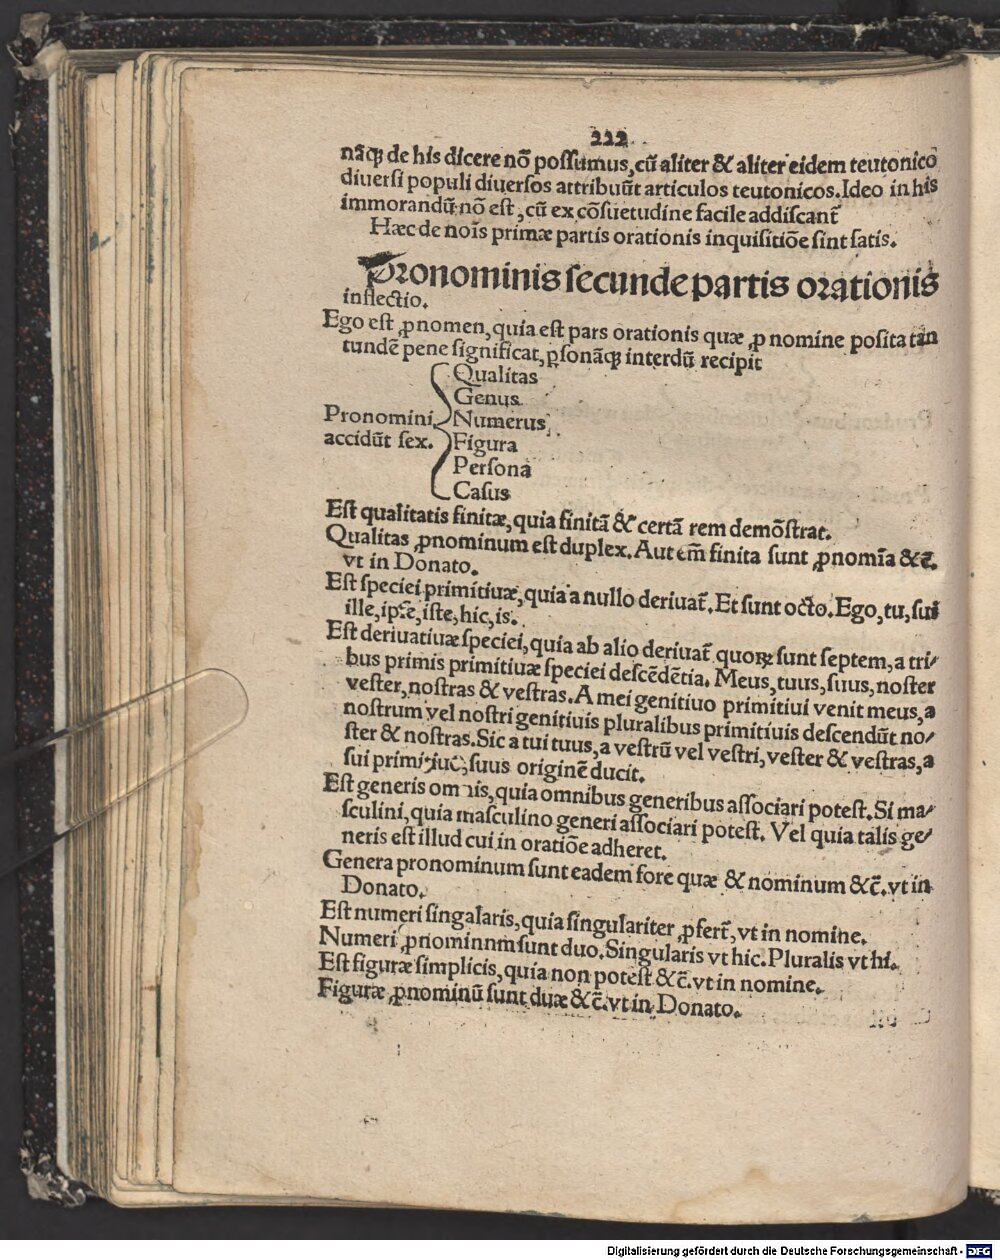 222
nãq̃ de his dicere nõ possumus, cũ aliter & aliter eidem teutonico
diuersi populi diuersos attribuũt articulos teutonicos. Ideo in his
immorandũ nõ est, cũ ex cõsuetudine facile addiscant̃
Hæc de nois primæ partis orationis inquisitiõe sint satis.
Pronominis secunde partis orationis
inflectio.
Ego est ꝓnomen, quia est pars orationis quæ ꝓ nomine posita tan
tundẽ pene significat, ꝑsonãq̃ interdũ recipit
Qualitas
Genus
Pronomini Numerus
accidũt sex. Figura
Persona
Casus
Est qualitatis finitæ, quia finitã & certã rem demõstrat.
Qualitas ꝓnominum est duplex. Aut em̃ finita sunt ꝓnomĩa &c̃.
vt in Donato.
Est speciei primitiuæ, quia a nullo deriuat̃. Et sunt octo. Ego, tu, sui
ille, ipse, iste, hic, is.
Est deriuatiuæ speciei, quia ab alio deriuat̃ quoꝝ sunt septem, a tri/
bus primis primitiuæ speciei descẽdẽtia. Meus, tuus, suus, noster
vester, nostras & vestras. A mei genitiuo primitiui venit meus, a
nostrum vel nostri genitiuis pluralibus primitiuis descendũt no/
ster & nostras. Sic a tui tuus, a vestrũ vel vestri, vester & vestras, a
sui primitiuo, suus originẽ ducit.
Est generis omnis, quia omnibus generibus associari potest. Si ma/
sculini, quia masculino generi associari potest. Vel quia talis ge/
neris est illud cui in oratiõe adheret.
Genera pronominum sunt eadem fore quæ & nominum &c̃. vt in
Donato.
Est numeri singalaris, quia singulariter ꝓfert̃, vt in nomine.
Numeri ꝓnominnm sunt duo. Singularis vt hic. Pluralis vt hi.
Est figuræ simplicis, quia non potest &c̃. vt in nomine.
Figuræ ꝓnominũ sunt duæ &c̃. vt in Donato.
Digitalisierung gefördert durch die Deutsche Forschungsgemeinschaft - DFG